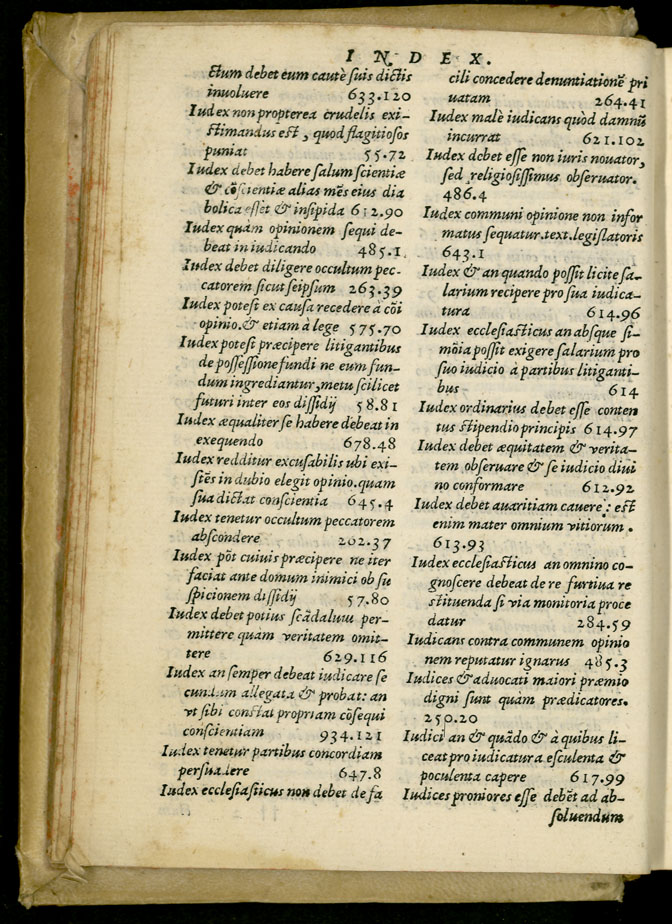 INDEX.
ctum debet eum cautè suis dictis
inuoluere 633.120
Iudex non propterea crudelis exi-
stimandus est, quod flagitiosos
puniat 55.72
Iudex debet habere salum scientiæ
& cōscientiæ alias mēs eius dia
bolica esset & insipida 612.90
Iudex quàm opinionem sequi de-
beat in iudicando 485.1
Iudex debet diligere occultum pec-
catorem sicut seipsum 263.39
Iudex potest ex causa recedere à cōi
opinio. & etiam à lege 575.70
Iudex potest præcipere litigantibus
de possessione fundi ne eum fun-
dum ingrediantur, metu scilicet
futuri inter eos dissidij 58.81
Iudex æqualiter se habere debeat in
exequendo 678.48
Iudex redditur excusabilis ubi exi-
stēs in dubio elegit opinio. quam
sua dictat conscientia 645.4
Iudex tenetur occultum peccatorem
abscondere 262.37
Iudex pōt cuiuis præcipere ne iter
faciat ante domum inimici ob su
spicionem dissidij 57.80
Iudex debet potius scādalum per-
mittere quam veritatem omit-
tere 629.116
Iudex an semper debeat iudicare se
cundum allegata & probat: an
vt sibi constat propriam cōsequi
conscientiam 934.121
Iudex tenetur partibus concordiam
persuadere 647.8
Iudex ecclesiasticus non debet de fa
cili concedere denuntiationē pri
uatam 264.41
Iudex malè iudicans quòd damnū
incurrat 621.102
Iudex debet esse non iuris nouator,
sed religiosissimus obseruator.
486.4
Iudex communi opinione non infor
matus sequatur. text. legislatoris
643.1
Iudex & an quando possit licite sa-
larium recipere pro sua iudica-
tura 614.96
Iudex ecclesiasticus an absque si-
mōia possit exigere salarium pro
suo iudicio à partibus litiganti-
bus 614
Iudex ordinarius debet esse conten
tus stipendio principis 614.97
Iudex debet æquitatem & verita-
tem obseruare & se iudicio diui
no conformare 612.92
Iudex debet auaritiam cauere: est
enim mater omnium vitiorum.
613.93
Iudex ecclesiasticus an omnino co-
gnoscere debeat de re furtiua re
stituenda si via monitoria proce
datur 284.59
Iudicans contra communem opinio
nem reputatur ignarus 485.3
Iudices & aduocati maiori præmio
digni sunt quàm prædicatores.
250.20
Iudici an & quādo & à quibus li-
ceat pro iudicatura esculenta &
poculenta capere 617.99
Iudices proniores esse debēt ad ab-
soluendum